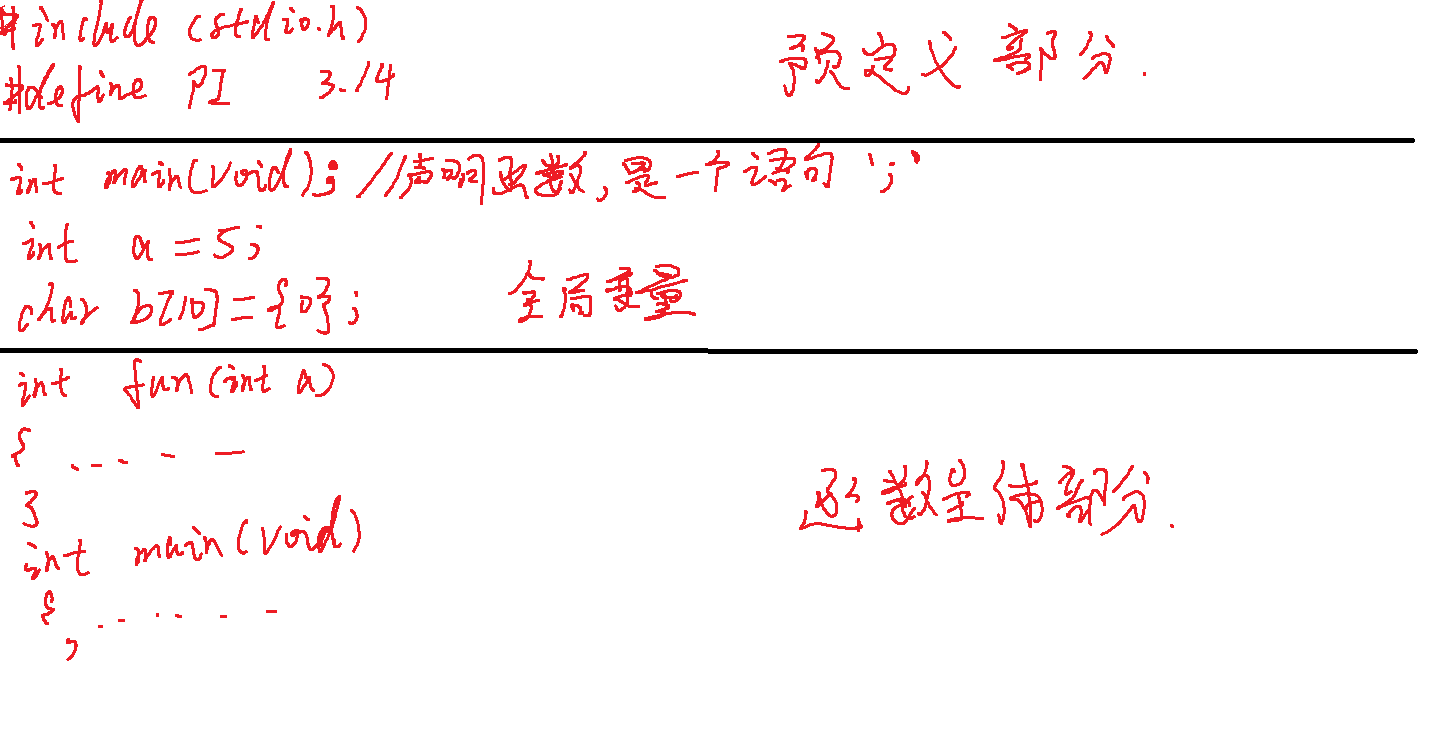 #include (stdio.h)
#define PI 3.14
预定义部分.
int main(void); //声明函数,是一个语句';'
int a=5;
char b[10]={0};
全局变量
int fun(int a)
{ ..... -
}
int main(void)
{ ......
}
函数主体部分.